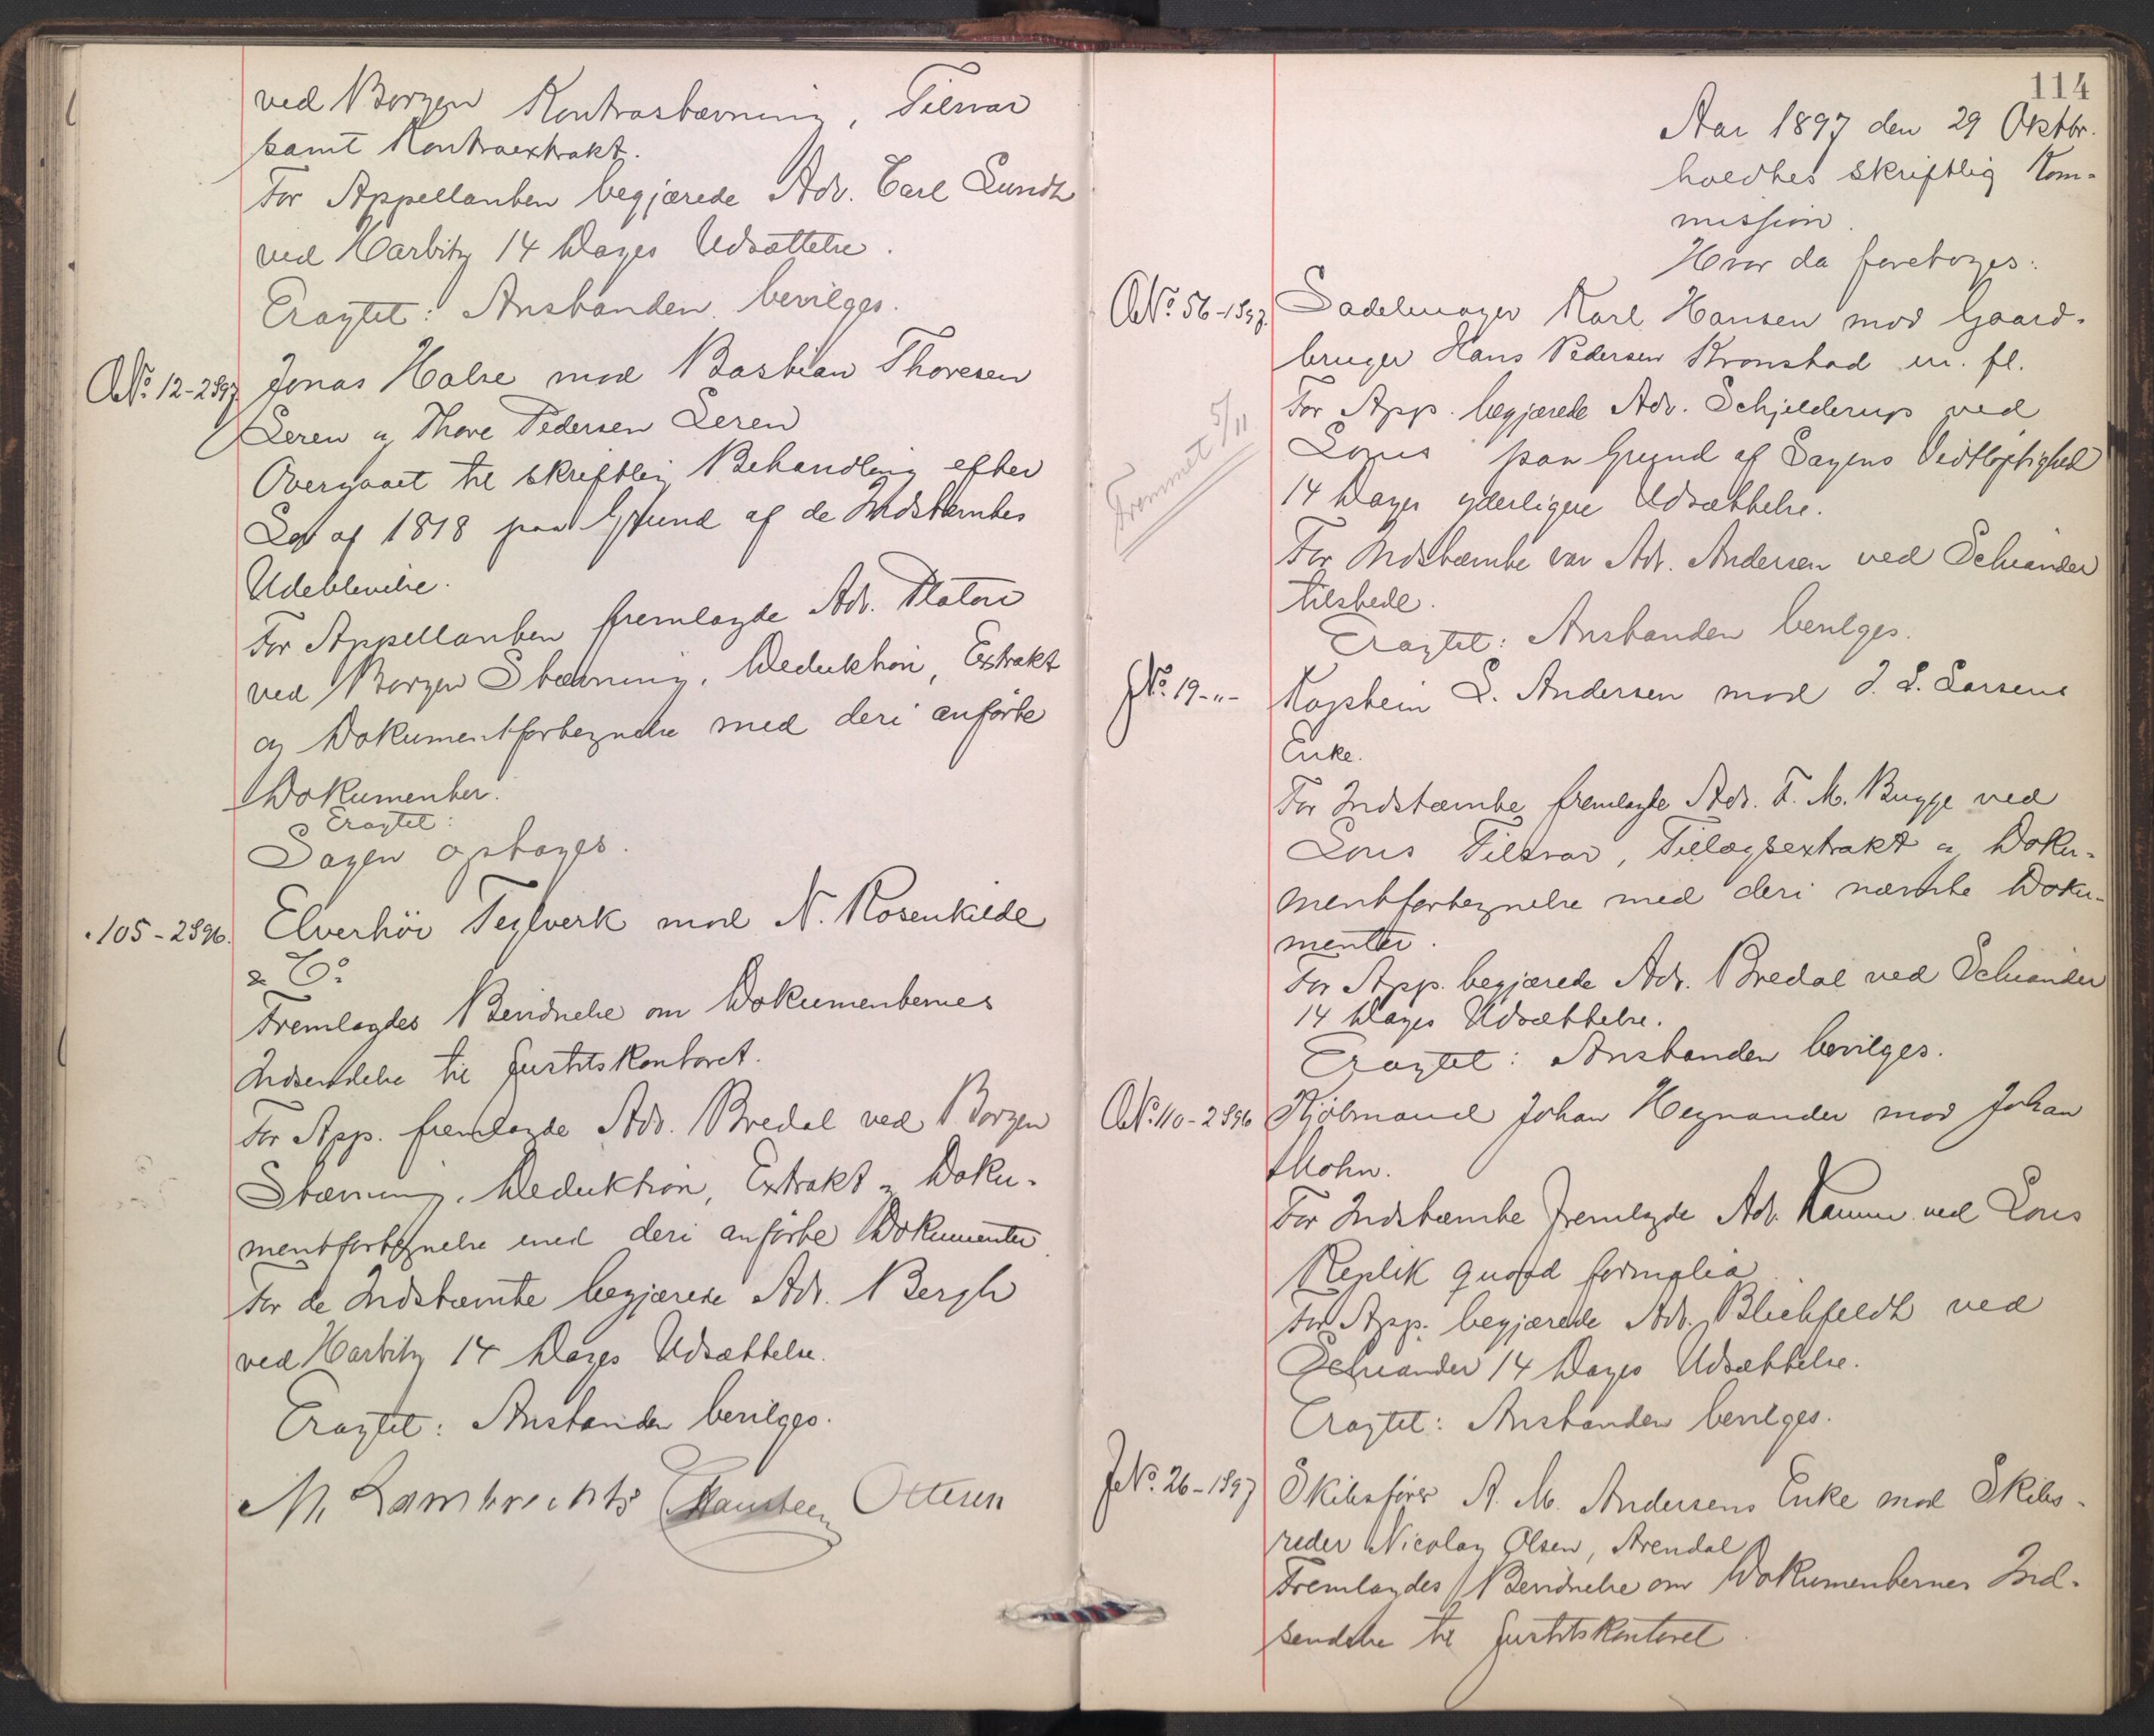 ved Borgen Kontrastævning, Tilsvar
samt Kontraextrakt.
For Appellanten begjærede Adv. Carl Lundh
ved Harbitz 14 Dages Udsættelse.
Eragtet: Anstanden bevilges.
No. 12-2 897. Jonas Halse mod Bastian Thoresen
Leren og Thore Pedersen Leren
Overgaaet til skriftlig Behandling efter
Lov af 1818 paa Grund af de Indstævntes
Udeblivelse.
For Appellanten fremlagde Adv. Platou
ved Borgen Stævning, Deduktion, Extrakt
og Dokumentfortegnelse med deri anførte
Dokumenter.
Eragtet:
Sagen optages.
105-2 896. Elverhöi Teglverk mod N. Rosenkilde
& Co.
Fremlagdes Bevidnelse om Dokumenternes
Indsendelse til Justitskontoret.
For App. fremlagde Adv. Bredal ved Borgen
Stævning, Deduktion, Extrakt og Doku-
mentfortegnelse med deri anførte Dokumenter.
For de Indstævnte begjærede Adv. Bergh
ved Harbitz 14 Dages Udsættelse.
Eragtet: Anstanden bevilges.
M. Lambrechts Hansteen Ottesen
114
Aar 1897 den 29 Oktbr.
holdtes skriftlig Kom-
mission.
Hvor da foretoges:
No. 56-1897. Sadelmager Karl Hansen mod Gaard-
bruger Hans Pedersen Kronstad m. fl.
For App. begjærede Adv. Schjelderup ved
Lous paa Grund af Sagens Vidtløftighed
14 Dages yderligere Udsættelse.
Fremmet 5/11
For Indstævnte var Adv. Andersen ved Schiander
tilstede.
Eragtet: Anstanden bevilges.
No. 19-"- Kaptein L. Andersen mod J. L. Larsens
Enke.
For Indstævnte fremlagde Adv. F. M. Bugge ved
Lous Tilsvar, Tillægsextrakt og Doku-
mentfortegnelse med deri nævnte Doku-
menter.
For App. begjærede Adv. Bredal ved Schiander
14 Dages Udsættelse.
Eragtet: Anstanden bevilges.
No. 110-2 896 Kjöbmand Johan Hegnander mod Johan
Mohn.
For Indstævnte fremlagde Adv. ved Lous
Replik quoad formalia
For App. begjærede Adv. Blichfeldt ved
Schiander 14 Dages Udsættelse.
Eragtet: Anstanden bevilges.
No. 26-1897 Skibsfører A. M. Andersens Enke mod Skibs-
reder Nicolay Olsen, Arendal
Fremlagdes Bevidnelse om Dokumenternes Ind-
sendelse til Justitskontoret.